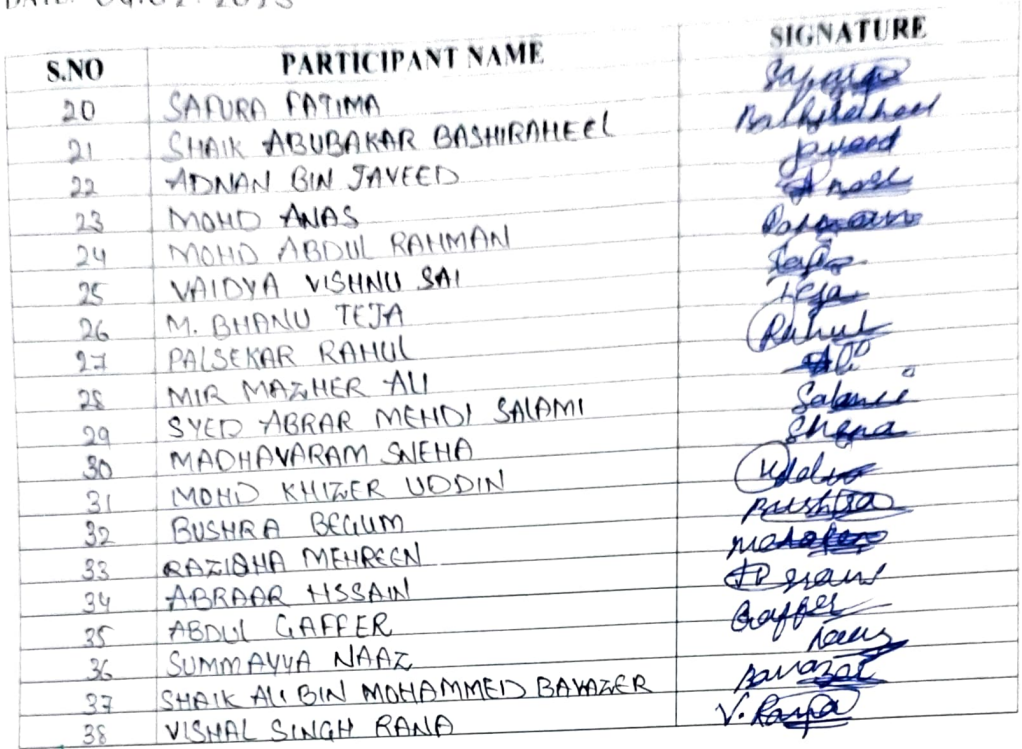 S.NO PARTICIPANT NAME SIGNATURE
20 SAFURA FATIMA
21 SHAIK ABUBAKAR BASHIRAHEEL Bashiraheel
22 ADNAN BIN JAVEED Javeed
23 MOHD ANAS Anas
24 MOHD ABDUL RAHMAN
25 VAIDYA VISHNU SAI
26 M. BHANU TEJA Teja
27 PALSEKAR RAHUL Rahul
28 MIR MAZHER ALI Ali
29 SYED ABRAR MEHDI SALAMI Salami
30 MADHAVARAM SNEHA Sneha
31 MOHD KHIZER UDDIN Uddin
32 BUSHRA BEGUM Bushra
33 RAZISHA MEHREEN
34 ABRAAR HSSAIN
35 ABDUL GAFFER Gaffer
36 SUMMAYYA NAAZ Naaz
37 SHAIK ALI BIN MOHAMMED BAVAZER Bavazer
38 VISHAL SINGH RANA V. Rana